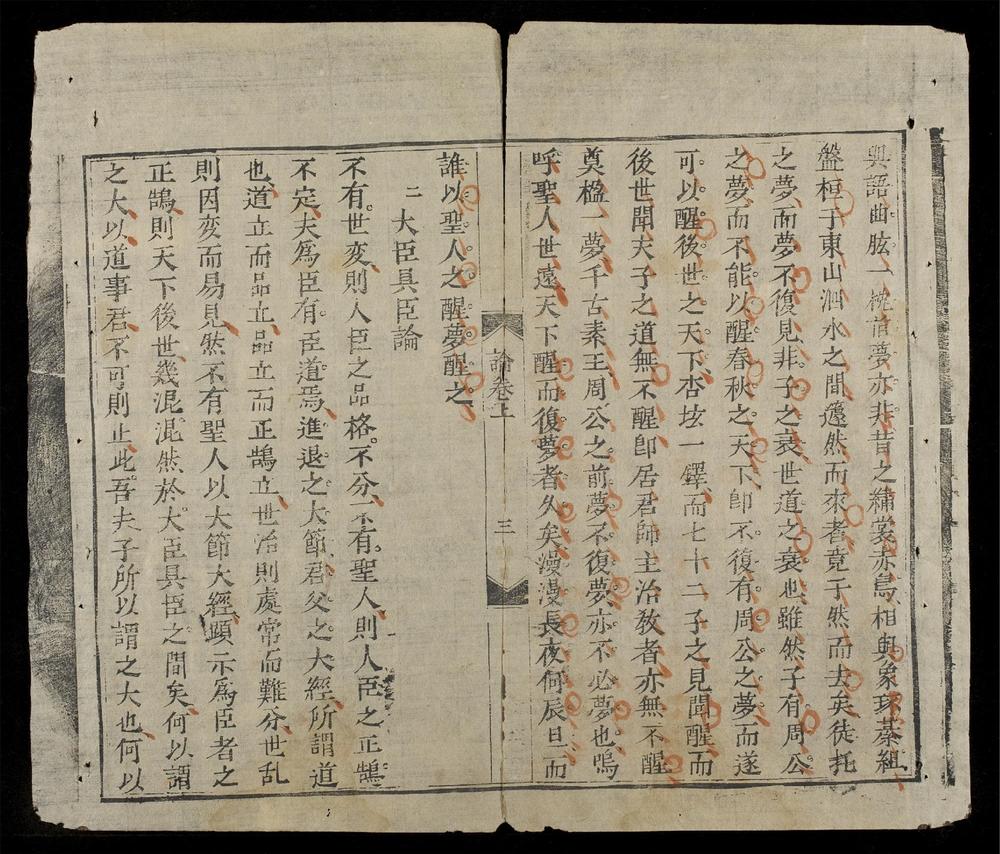 與語曲肱一枕前夢亦非昔之繡裳赤舄相與象环綦組
盤桓于東山泗水之間蘧然而來者竟于然而去矣徒托
之夢而夢不復見非子之衰世道之衰也雖然子有周公
之夢而不能以醒春秋之天下卽不復有周公之夢而遂
可以醒後世之天下杏坛一鐸而七十二子之見聞醒而
後世聞夫子之道無不醒卽居君師主治敎者亦無不醒
奠楹一夢千古素王周公之前夢不復夢亦不必夢也嗚
呼聖人世遠天下醒而復夢者久矣漫漫長夜何辰旦而
誰以聖人之醒夢醒之
論卷上 三
二 大臣具臣論
不有世変則人臣之品格不分不有聖人則人臣之正鵠
不定夫爲臣有臣道焉進退之大節君父之大經所謂道
也道立而品立品立而正鵠立世治則處常而難分世乱
則因変而易見然不有聖人以大節大經顕示爲臣者之
正鵠則天下後世幾混混然於大臣具臣之間矣何以謂
之大以道事君不可則止此吾夫子所以謂之大也何以